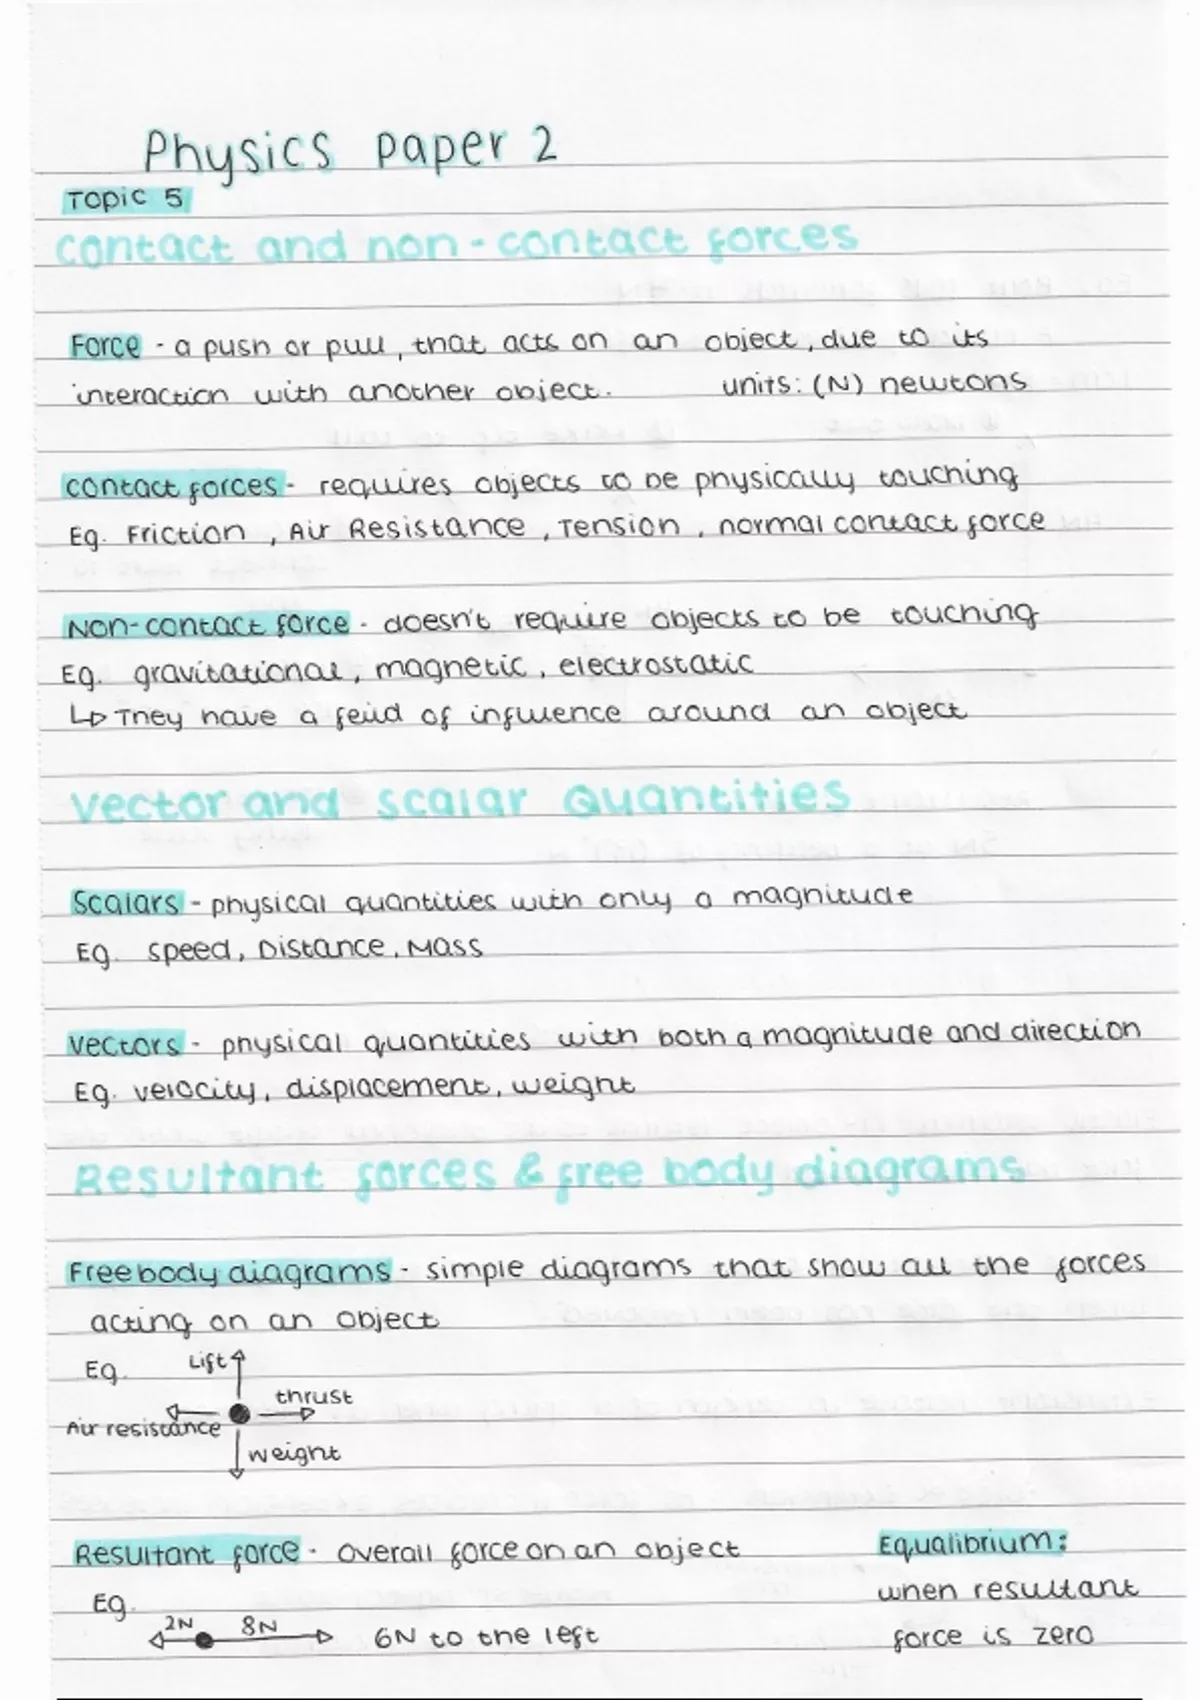 Physics paper 2
Topic 5
Contact and non-contact forces
Force - a push or pull, that acts on an object, due to its
interaction with another object. units: (N) newtons
contact forces - requires objects to be physically touching
Eg. Friction, Air Resistance, Tension, normal contact force
Non-contact force - doesn't require objects to be touching
Eg. gravitational, magnetic, electrostatic
↳ They have a feild of influence around an object
Vector and scalar Quantities
Scalars - physical quantities with only a magnitude
Eg. speed, Distance, Mass
Vectors - physical quantities with both a magnitude and direction
Eg. velocity, displacement, weight
Resultant forces & free body diagrams
Free body diagrams - simple diagrams that show all the forces
acting on an object
Eg. Lift
thrust
Air resistance
weight
Resultant force - Overall force on an object
Eg.
2N 8N 6N to the left
Equalibrium:
when resultant
force is zero